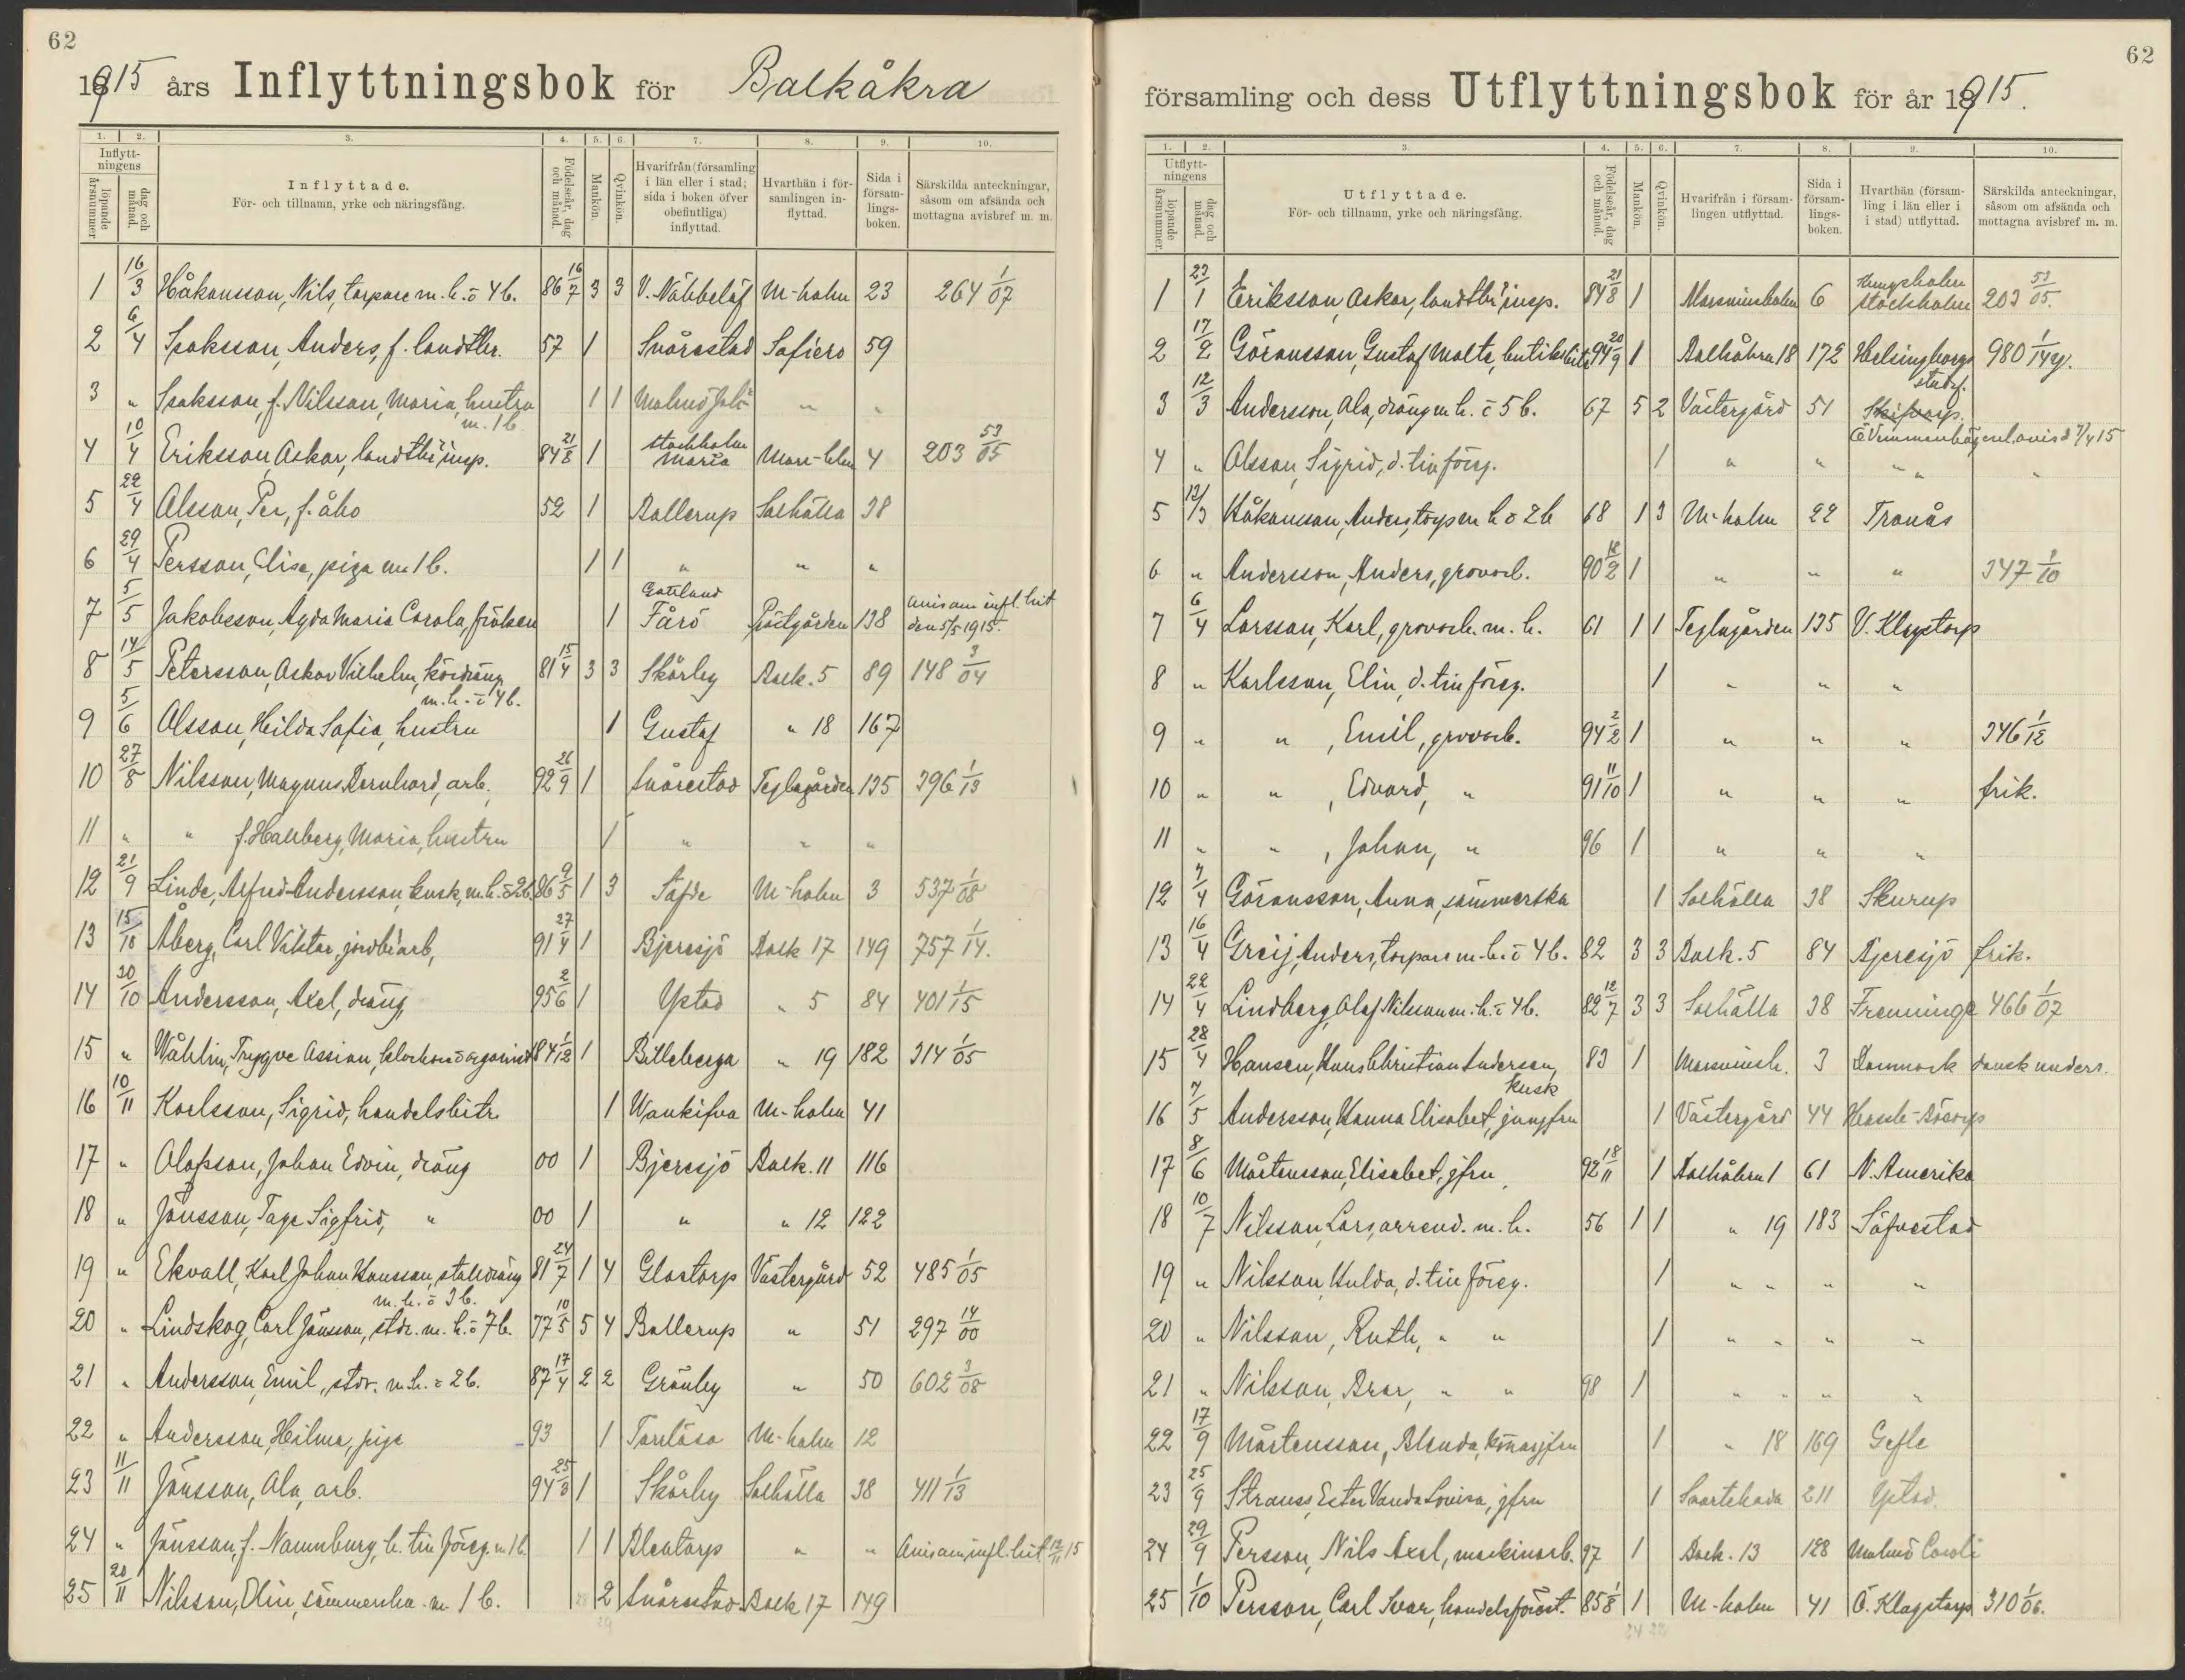 62
1915 års Inflyttningsbok för Balkåkra
1. 2. 3. 4. 5. 6. 7. 8. 9. 10.
Inflyttningens
löpande årsnummer
dag och månad.
Inflyttade.
För- och tillnamn, yrke och näringsfång.
Födelseår, dag och månad.
Mankön.
Qvinkön.
Hvarifrån (församling i län eller i stad; sida i boken öfver obefintliga) inflyttad.
Hvarthän i församlingen inflyttad.
Sida i församlingsboken.
Särskilda anteckningar, såsom om afsända och mottagna avisbref m. m.
1 16/3 Håkansson, Nils, torpare m. h. o 4 b. 86 16/7 3 3 V. Nöbbelöf M-holm 23 264 1/07
2 6/4 Isaksson, Anders, f. landtbr. 57 1 Snårestad Sofiero 59
3 " Isaksson, f. Nilsson, Maria, hustru m. 1 b. 1 1 Malmö " "
4 10/4 Eriksson, Oskar, landtbr. insp. 84 21/8 1 Stockholm Maria 4 203 53/05
5 22/4 Olsson, Per, f. åbo 52 1 Bollerup Solhälla 38
6 29/4 Persson, Elise, piga m 1 b. 1 1 " " "
7 5/5 Jakobsson, Agda Maria Carola, fröken 1 Gotland Fårö Prästgården 138 Avis om infl. hit den 5/5 1915.
8 14/5 Petersson, Oskar Vilhelm, kördräng m. h. o 4 b. 81 15/4 3 3 Skårby Balk. 5 89 148 3/04
9 5/6 Olsson, Hilda Sofia, hustru 1 Gustaf " 18 167
10 27/8 Nilsson, Magnus Bernhard, arb. 92 26/9 1 Snårestad Teglagården 135 396 1/13
11 " " f. Hallberg, Maria, hustru 1 " " "
12 21/9 Linde, Alfred Andersson, kusk, m. h. o 2 b. 86 9/5 1 3 Söfde M-holm 3 537 1/08
13 15/10 Åberg, Carl Viktor, jordbr. arb, 91 27/4 1 Bjeresjö Balk 17 149 757 1/14.
14 30/10 Andersson, Axel, dräng 95 2/6 1 Ystad " 5 84 401 1/15
15 " Wåhlin, Trygve Ossian, klockare o organist 84 1/12 1 Billeberga " 19 182 314 1/05
16 10/11 Karlsson, Sigrid, handelsbitr. 1 Wankifva M-holm 41
17 " Olofsson, Johan Edvin, dräng 00 1 Bjeresjö Balk. 11 116
18 " Jönsson, Tage Sigfrid, " 00 1 " " 12 122
19 " Ekvall, Karl Johan Hansson, stalldräng m. h. o 3 b. 81 24/7 1 4 Glostorp Västergård 52 485 1/05
20 " Lindskog, Carl Jönsson, stdr. m. h. o 7 b. 77 10/5 5 4 Bollerup " 51 297 14/00
21 " Andersson, Emil, stdr. m. h. o 2 b. 87 17/4 2 2 Grönby " 50 602 3/08
22 " Andersson, Hilma, piga 93 1 Torrlösa M-holm 12
23 11/11 Jönsson, Ola, arb. 94 25/3 1 Skårby Solhälla 38 411 1/13
24 " Jönsson, f. Nannburg, h. till föreg. m 1 b. 1 1 Blentarp " " Avis om infl. hit 12/11 15
25 20/11 Nilsson, Olin, sömmerska m 1 b. 2 Snårestad Balk 17 149
62
församling och dess Utflyttningsbok för år 1915.
1. 2. 3. 4. 5. 6. 7. 8. 9. 10.
Utflyttningens
löpande årsnummer
dag och månad.
Utflyttade.
För- och tillnamn, yrke och näringsfång.
Födelseår, dag och månad.
Mankön.
Qvinkön.
Hvarifrån i församlingen utflyttad.
Sida i församlingsboken.
Hvarthän (församling i län eller i stad) utflyttad.
Särskilda anteckningar, såsom om afsända och mottagna avisbref m. m.
1 23/1 Eriksson, Oskar, landtbr. insp. 84 21/8 1 Marsvinsholm 6 Kungsholm Stockholm 203 53/05.
2 17/2 Göransson, Gustaf Malte, butiksbitr. 94 20/9 1 Balkåkra 18 172 Helsingborgs stadsf. 980 1/14
3 12/3 Andersson, Ola, dräng m. h. o 5 b. 67 5 2 Västergård 51 Skifvarp. Ö Vemmenhög enl. avis d 7/4 15
4 " Olsson, Sigrid, d. till förg. 1 " " " "
5 12/3 Håkansson, Anders, torp m h o 2 b 68 1 3 M-holm 22 Tranås
6 " Andersson, Anders, grovarb. 90 18/2 1 " " " 347 1/10
7 6/4 Larsson, Karl, grovarb. m. h. 61 1 1 Teglagården 135 V. Klagstorp
8 " Karlsson, Elin, d. till föreg. 1 " " "
9 " " , Emil, grovarb. 94 2/2 1 " " " 346 1/12
10 " " , Edvard, " 91 11/10 1 " " " frik.
11 " " , Johan, " 96 1 " " "
12 7/4 Göransson, Anna, sömmerska 1 Solhälla 38 Skurup
13 16/4 Greij, Anders, torpare m. h. o 4 b. 82 3 3 Balk. 5 84 Bjeresjö frik.
14 22/4 Lindberg, Olof Nilsson m. h. o 4 b. 82 12/7 3 3 Solhälla 38 Frenninge 466 1/07
15 28/4 Hansen, Hans Christian Andersen, kusk 83 1 Marsvinsh. 3 Danmark dansk unders.
16 7/5 Andersson, Hanna Elisabet, jungfru 1 Västergård 44 Hassle-Bösarp
17 8/6 Mårtensson, Elisabet, jfru 92 18/11 1 Balkåkra 1 61 N. Amerika
18 10/7 Nilsson, Lars, arrend. m. h. 56 1 1 " 19 183 Söfvestad
19 " Nilsson, Hulda, d. till föreg. 1 " " " "
20 " Nilsson, Ruth, " " 1 " " " "
21 " Nilsson, Bror, " " 98 1 " " " "
22 17/9 Mårtensson, Blenda, jfru 1 " 18 169 Gefle
23 25/9 Strauss, Ester Vanda Lovisa, jfru 1 Svartehada 211 Ystad.
24 29/9 Persson, Nils Axel, maskinarb. 97 1 Balk. 13 128 Malmö Caroli
25 1/10 Persson, Carl Ivar, handelsförest. 85 1/8 1 M-holm 41 Ö. Klagstorp 310 1/06.